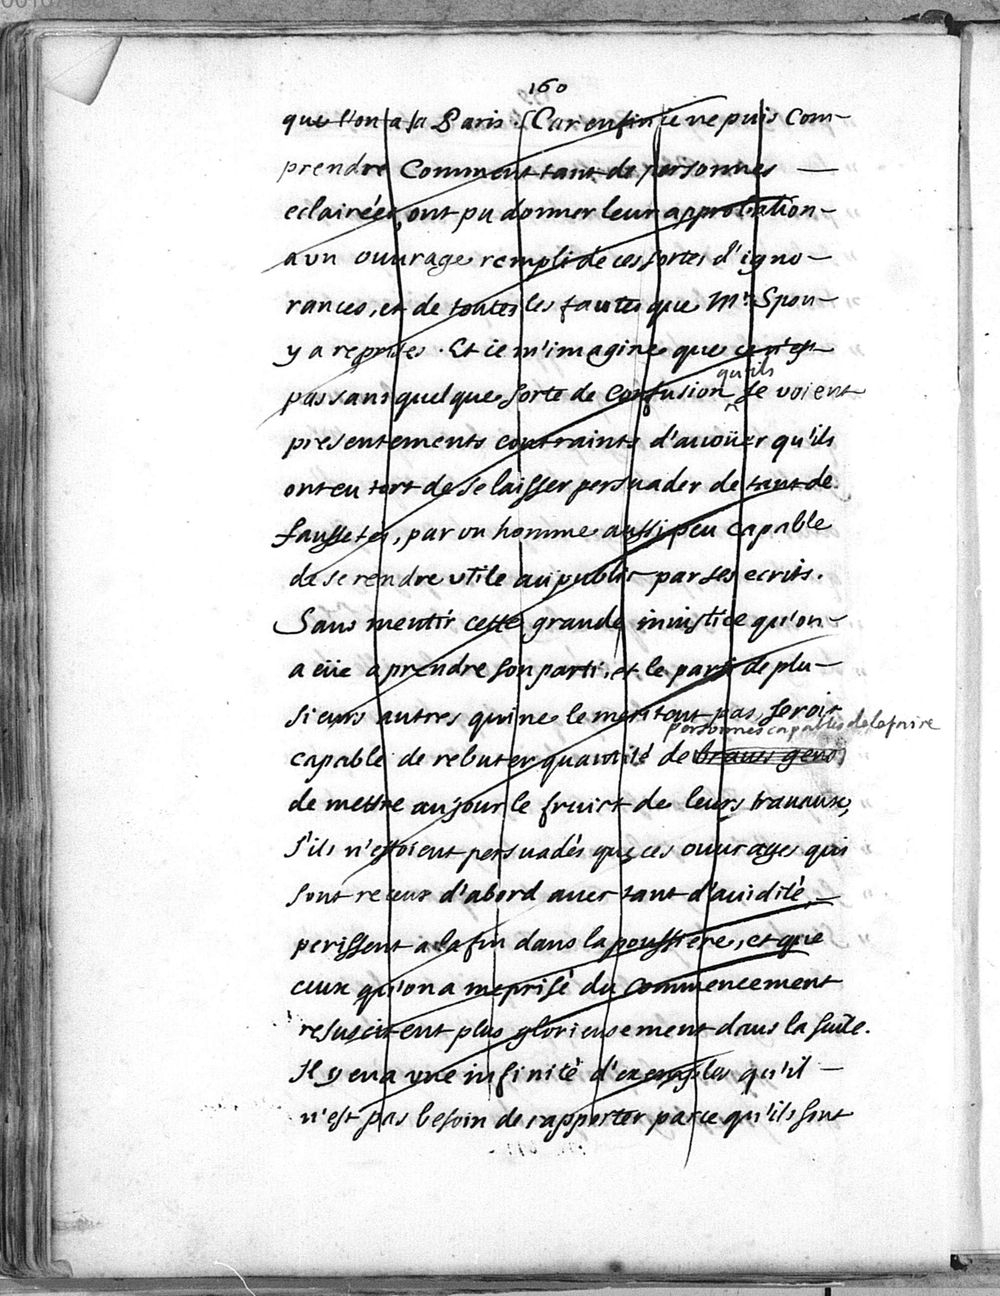 160
que l'on a fa Paris. [Car enfin ie ne puis Com-
prendre Comment tant de personnes
eclairées, ont pu donner leur approbation
a vn ouurage rempli de ces sortes d'igno-
rances, et de toutes les fautes que Mr. Spon
y a reprises. Et ie m'imagine que ce n'est
pas sans quelque sorte de Confusion qu'ils se voient
presentements contraints d'auoüer qu'ils
ont eu tort de se laisser persuader de tant de
faussetes, par vn homme aussi peu capable
de se rendre vtile au public par ses ecrits.
Sans mentir cette grande iniustice qu'on
a eüe a prendre son parti, et le parti de plu-
sieurs autres qui ne le meritout pas seroit
personnes capables de le faire
capable de rebuter quantité de braues gens
de mettre au jour le fruict de leurs trauaux,
s'ils n'estoient persuadés que ces ouurages qui
sont receus d'abord auec tant d'auidité,
perissent a la fin dans la poussiere, et que
ceux qu'on a meprisé du Commencement
resuscitent plus glorieusement dans la suite.
Il y en a vne infinité d'exemples qu'il
n'est pas besoin de rapporter parce qu'ils sont